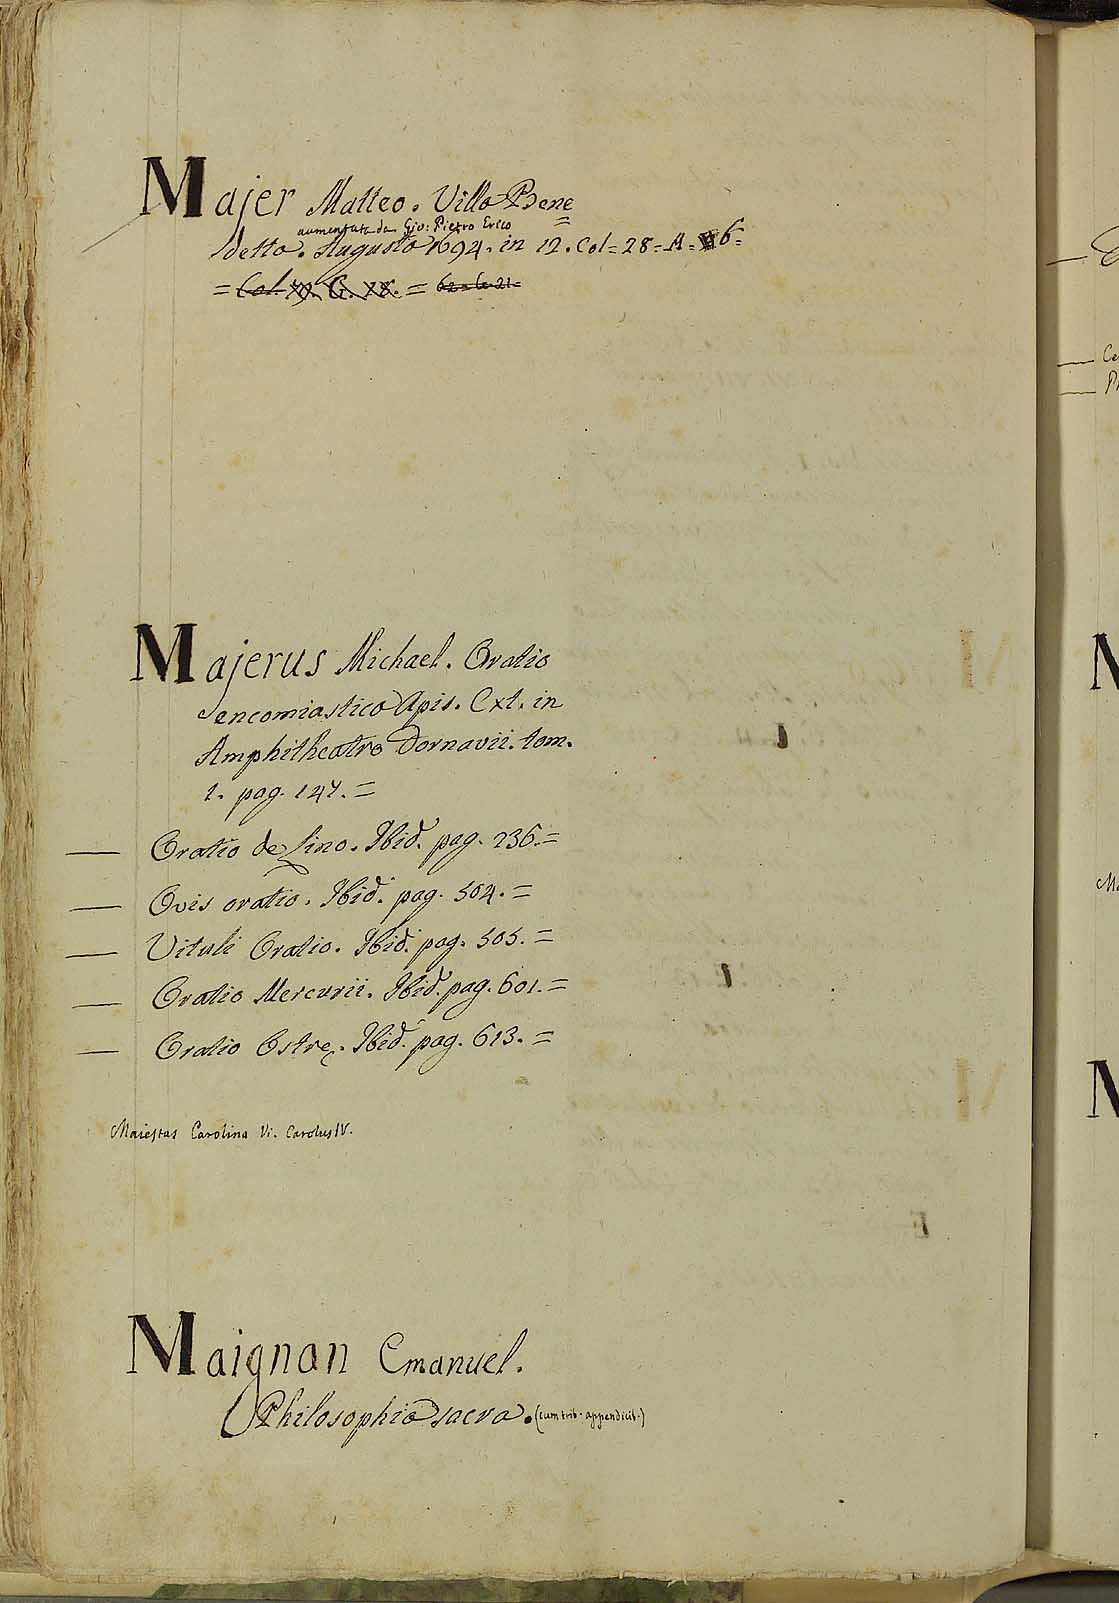 Majer Matteo. Villa Bene=
aumentata da Gio: Pietro Erico
detta. Augusto 1694. in 12. Col=28=A=6=
= Col. G. 18. = 62=G=21=
Majerus Michael. Oratio
encomiastica Apis. Ext. in
Amphitheatro Dornavii. tom.
1. pag. 147.=
— Oratio de Lino. Ibid. pag. 236.=
— Ovis oratio. Ibid. pag. 504.=
— Vituli Oratio. Ibid. pag. 505.=
— Oratio Mercurii. Ibid. pag. 601.=
— Oratio Ostreę. Ibid. pag. 613.=
Maiestas Carolina Vi. Carolus IV.
Maignan Emanuel.
Philosophia sacra. (cum trib. appendicib.)
Ce
M
M
M